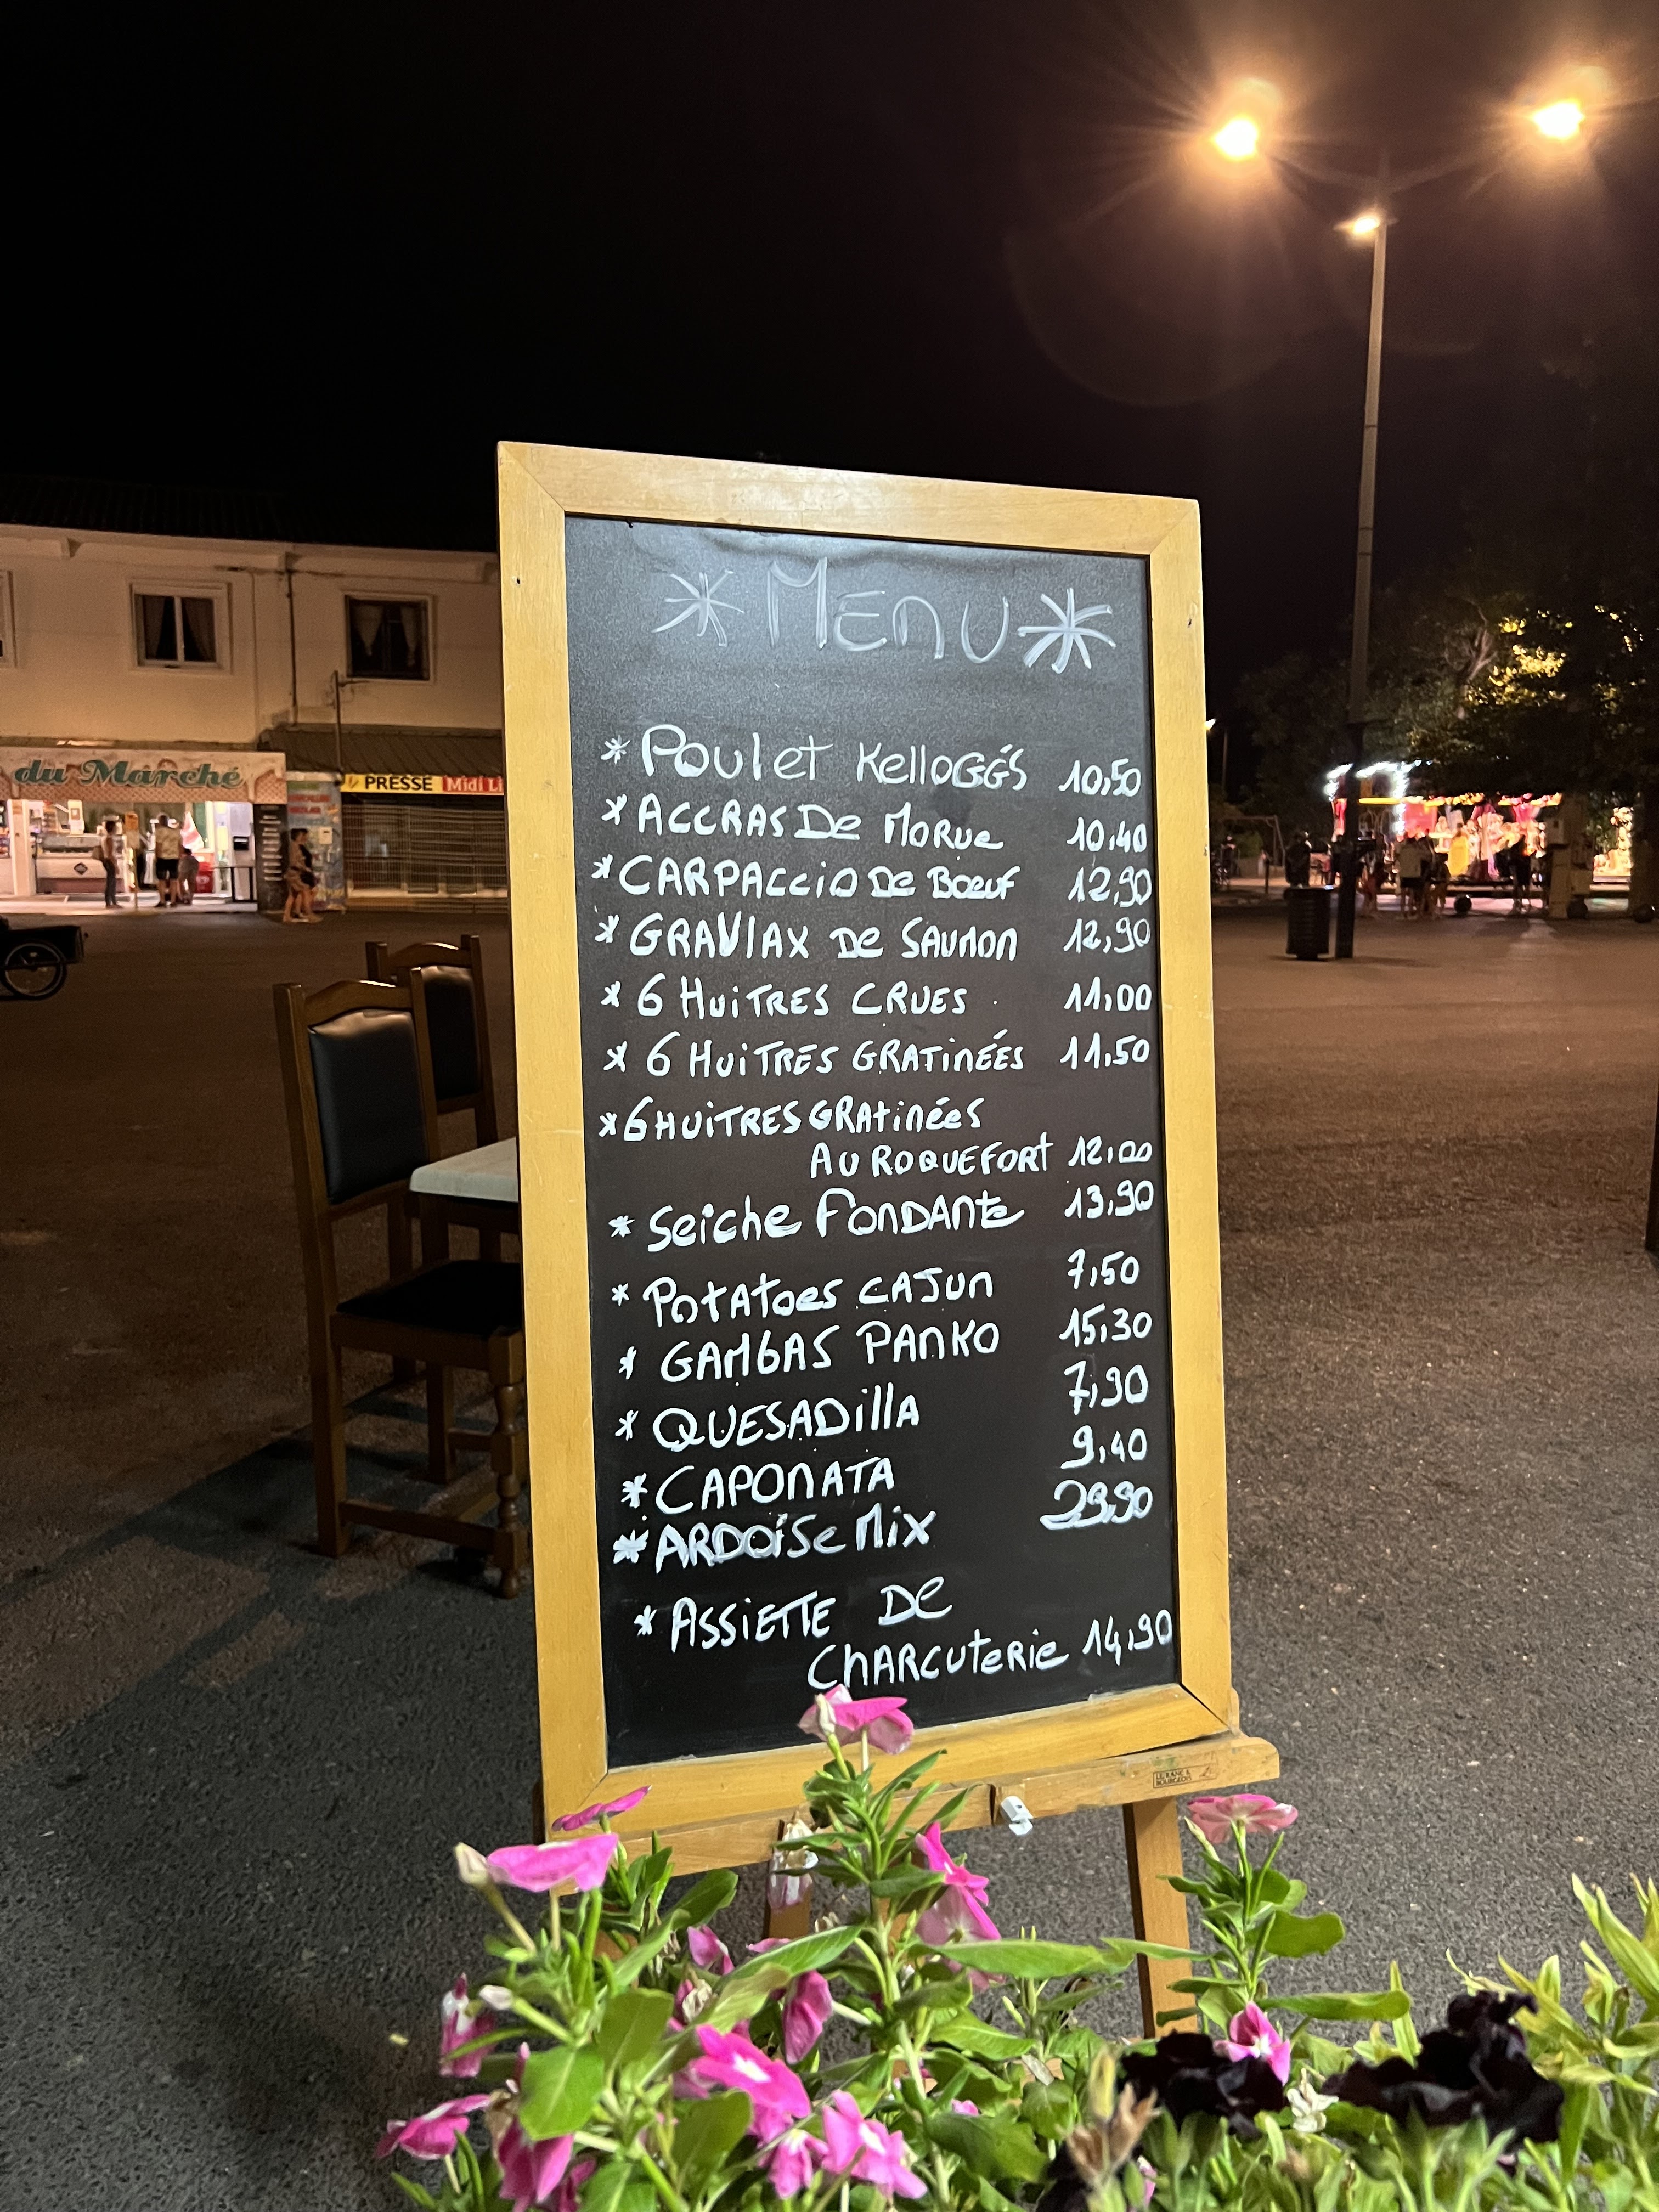 du Marché
PRESSE Midi Li
* MENU *
* POULET KELLOGG'S 10,50
* ACCRAS DE MORUE 10,40
* CARPACCIO DE BOEUF 12,90
* GRAVLAX DE SAUMON 12,90
* 6 HUITRES CRUES 11,00
* 6 HUITRES GRATINÉES 11,50
* 6 HUITRES GRATINÉES
AU ROQUEFORT 12,00
* SEICHE FONDANTE 13,90
* POTATOES CAJUN 7,50
* GAMBAS PANKO 15,30
* QUESADILLA 7,90
* CAPONATA 9,40
* ARDOISE MIX 29,90
* ASSIETTE DE
CHARCUTERIE 14,90